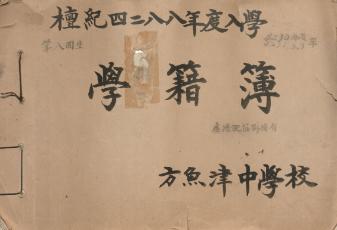 檀紀四二八八年度入學
第八回生
學籍簿
方魚津中學校